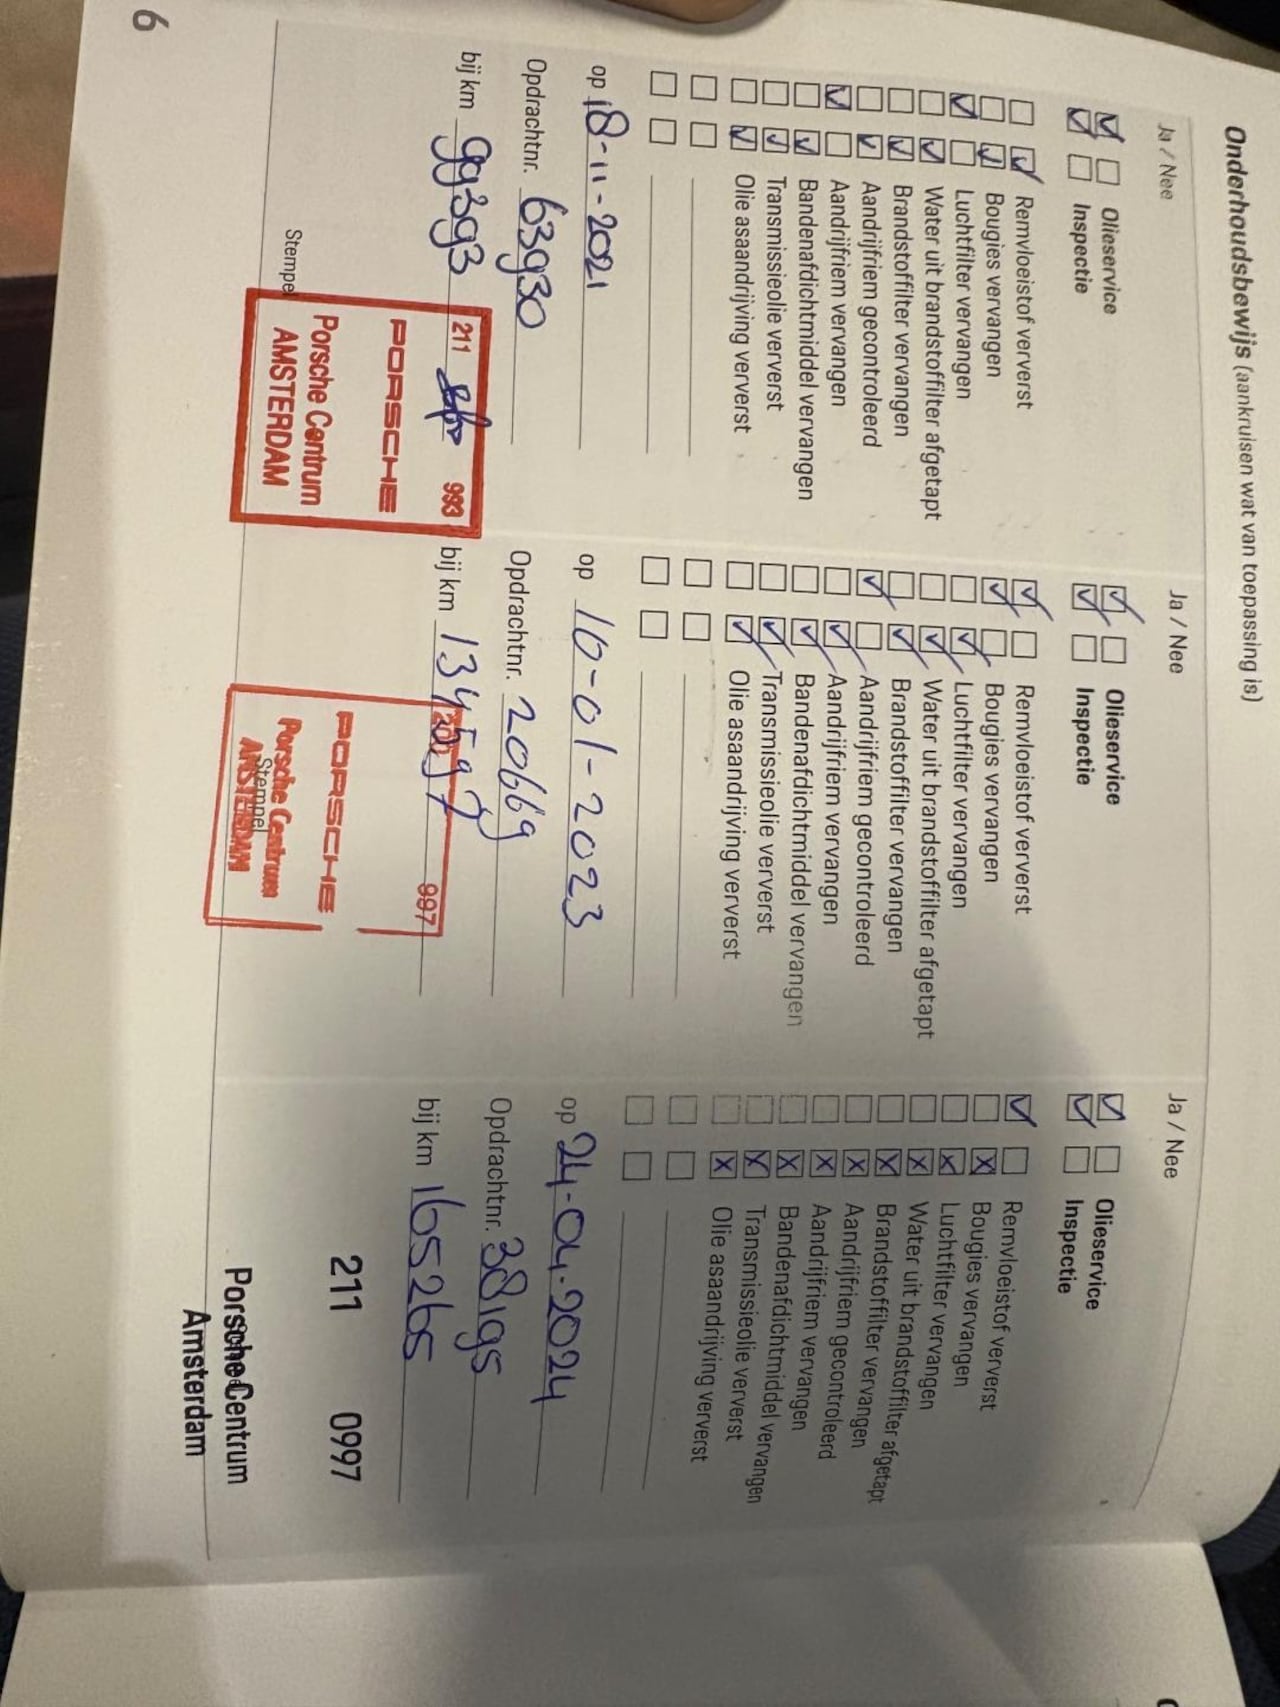 Onderhoudsbewijs (aankruisen wat van toepassing is)
Ja / Nee
Olieservice
Inspectie
Remvloeistof ververst
Bougies vervangen
Luchtfilter vervangen
Water uit brandstoffilter afgetapt
Brandstoffilter vervangen
Aandrijfriem gecontroleerd
Aandrijfriem vervangen
Bandenafdichtmiddel vervangen
Transmissieolie ververst
Olie asaandrijving ververst
op 18-11-2021
Opdrachtnr. 63930
bij km 99393
211 993
PORSCHE
Porsche Centrum
AMSTERDAM
Stempel
Ja / Nee
Olieservice
Inspectie
Remvloeistof ververst
Bougies vervangen
Luchtfilter vervangen
Water uit brandstoffilter afgetapt
Brandstoffilter vervangen
Aandrijfriem gecontroleerd
Aandrijfriem vervangen
Bandenafdichtmiddel vervangen
Transmissieolie ververst
Olie asaandrijving ververst
op 10-01-2023
Opdrachtnr. 20669
bij km 134597
997
PORSCHE
Porsche Centrum
AMSTERDAM
Stempel
Ja / Nee
Olieservice
Inspectie
Remvloeistof ververst
Bougies vervangen
Luchtfilter vervangen
Water uit brandstoffilter afgetapt
Brandstoffilter vervangen
Aandrijfriem gecontroleerd
Aandrijfriem vervangen
Bandenafdichtmiddel vervangen
Transmissieolie ververst
Olie asaandrijving ververst
op 24-04-2024
Opdrachtnr. 38195
bij km 165265
211 0997
Porsche Centrum
Amsterdam
6